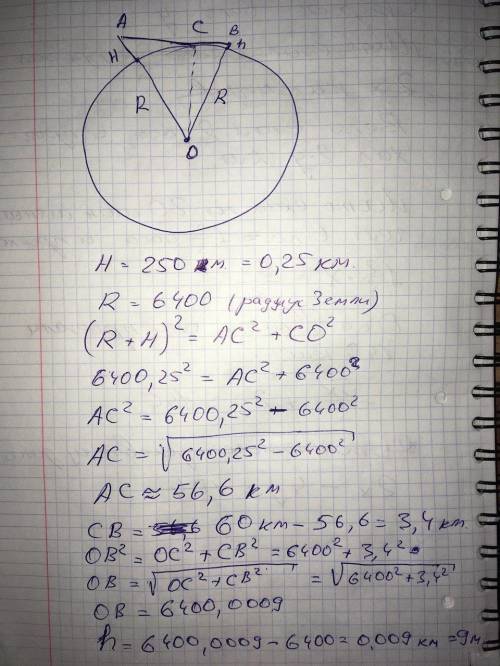 A C B
H h
R R
O
H = 250 м. = 0,25 км.
R = 6400 (радиус Земли)
(R + H)² = AC² + CO²
6400,25² = AC² + 6400²
AC² = 6400,25² - 6400²
AC = √(6400,25² - 6400²)
AC ≈ 56,6 км
CB = 60 км - 56,6 = 3,4 км
OB² = OC² + CB² = 6400² + 3,4²
OB = √(OC² + CB²) = √(6400² + 3,4²)
OB = 6400,0009
h = 6400,0009 - 6400 = 0,009 км = 9м